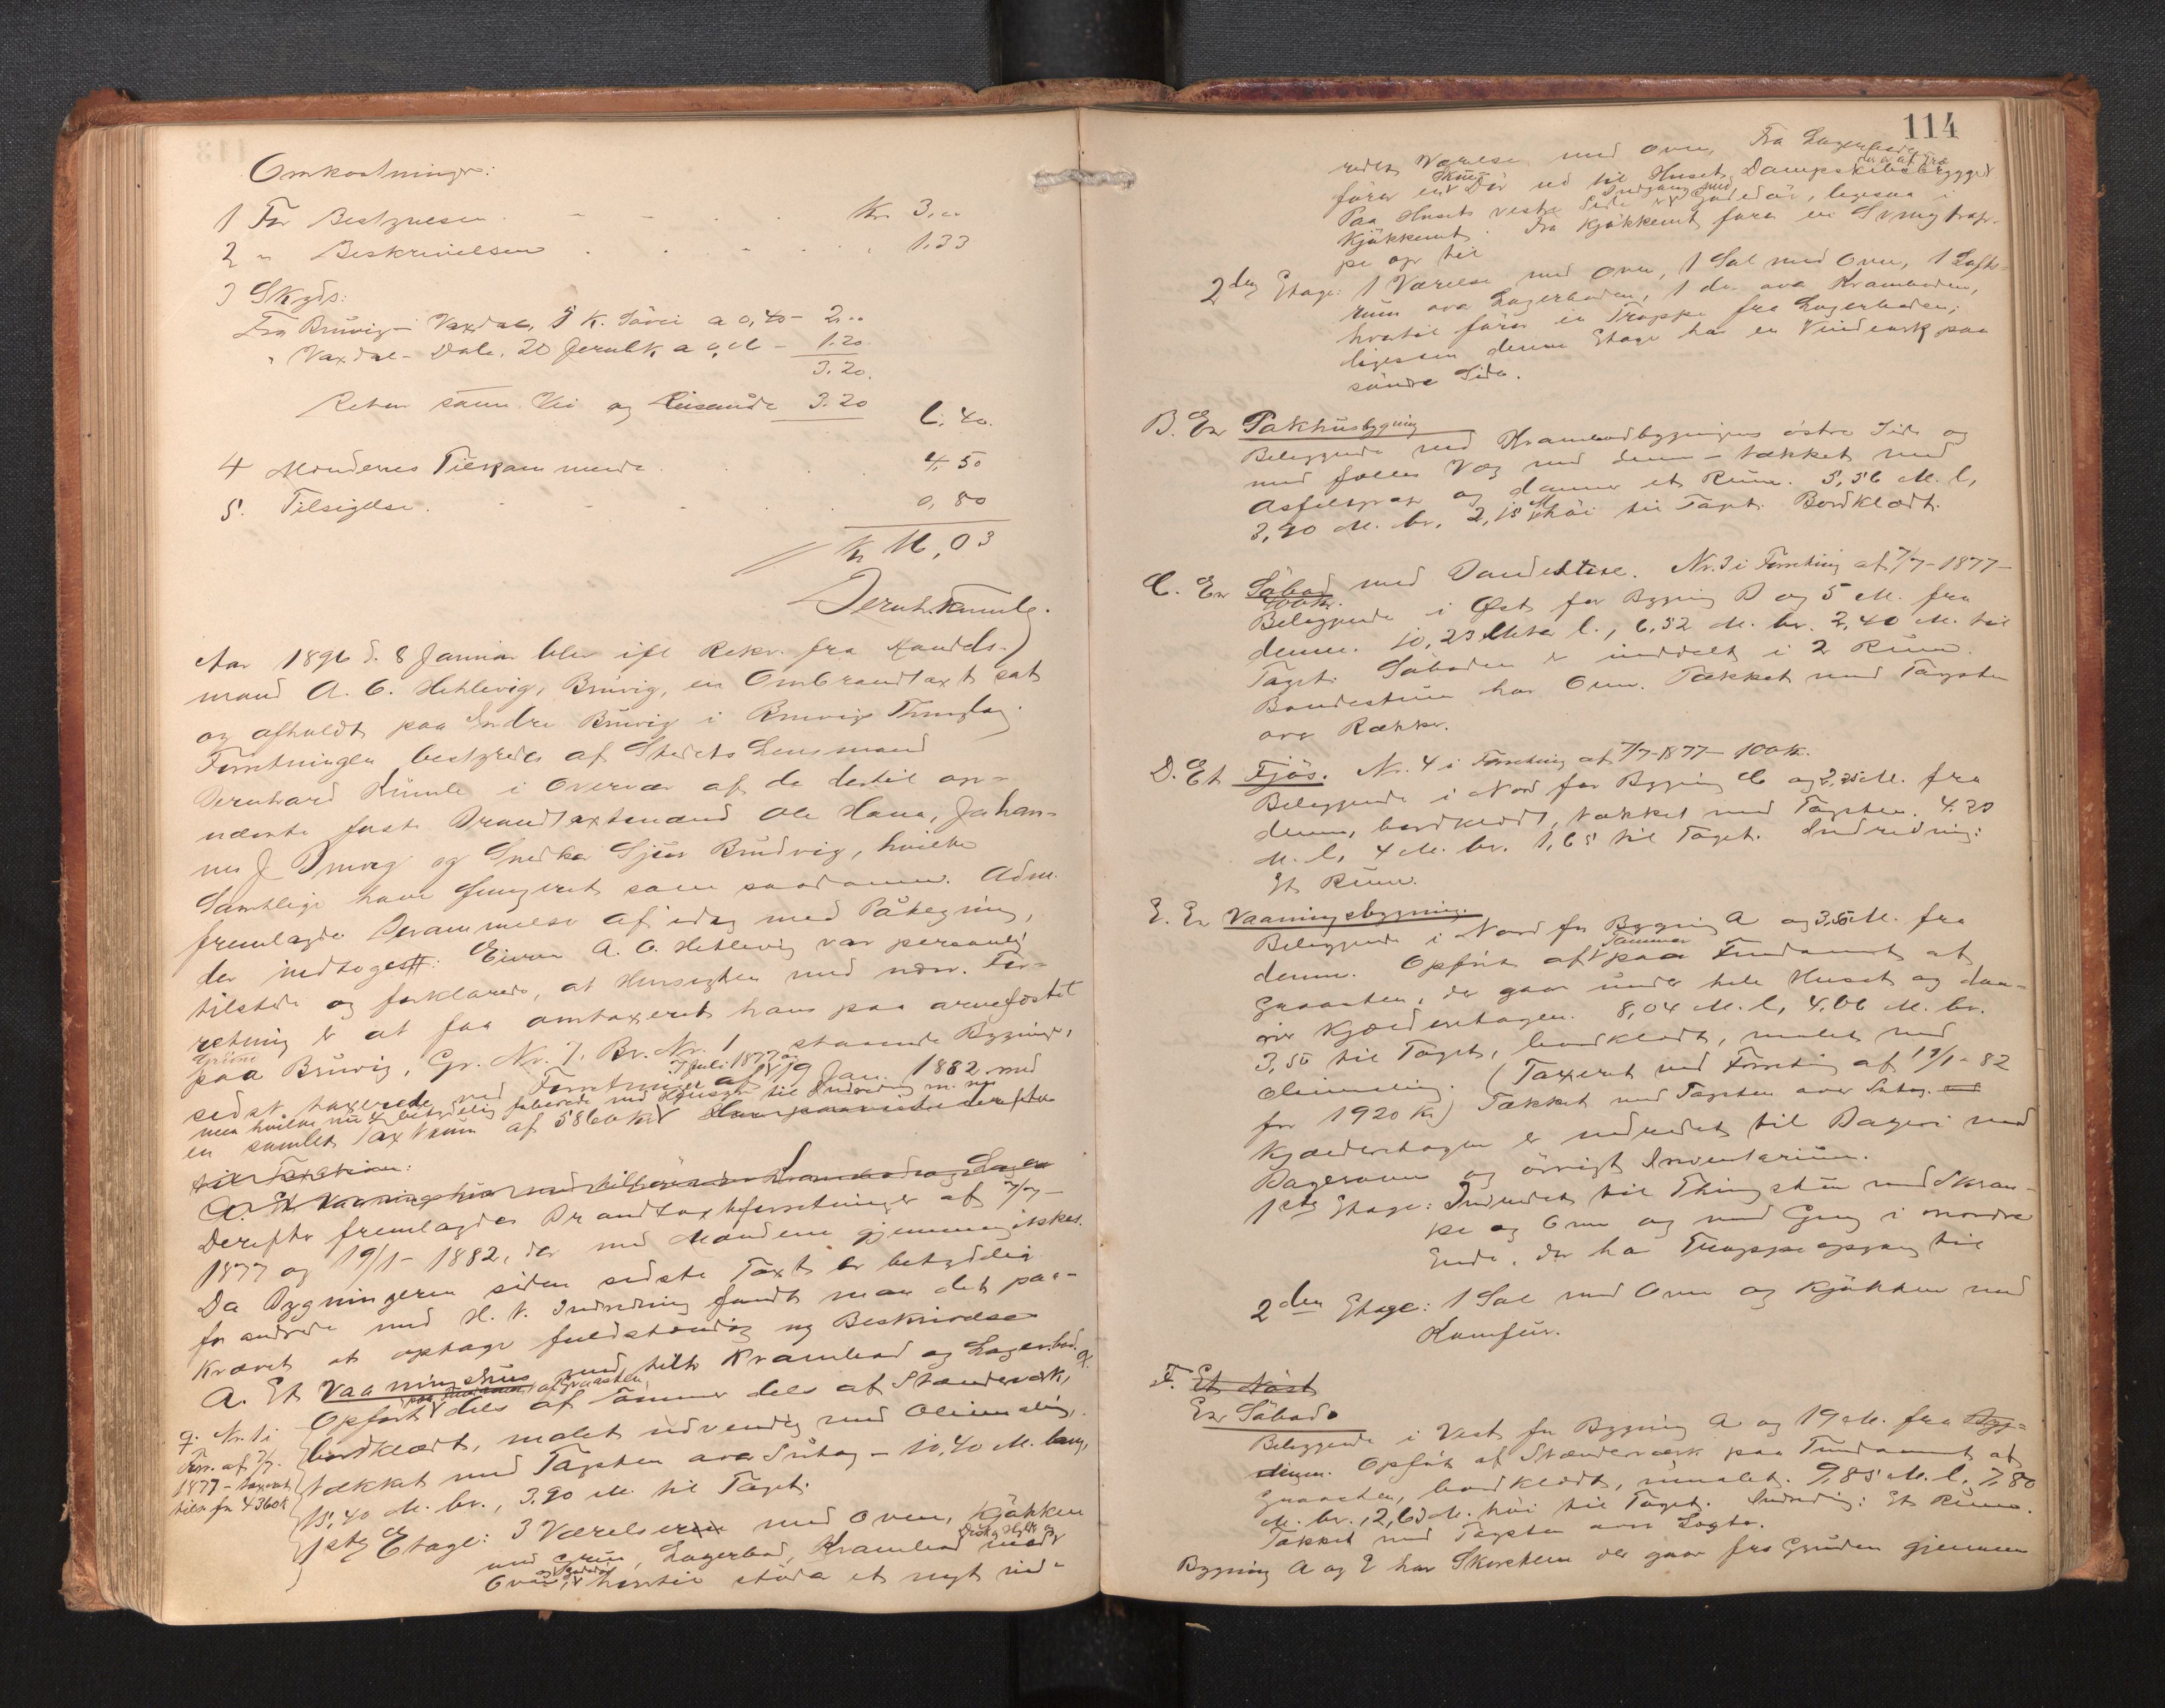 Omkostninger:
1 For Bestyrelsen Kr. 3,00
2 " Beskrivelsen 1.33
3 Skyds:
Fra Bruvig - Vaxdal, 5 K. Søvei a 0,40 - 2,00
" Vaxdal - Dale, 20 Jernbk. a 0,06 - 1.20
3.20.
Retur samme Vei og 3.20 6.40.
4 Mændenes Tilkommende 4,50
5. Tilsigelse. 0,80
Kr. 16,03
Aar 1896 d. 8 Januar blev ifl Rekv. fra Handels-
mand A. O. Hetlevig, Bruvig, en Ombrandtaxt sat
og afholdt paa Indre Bruvig i Bruvig Thinglag.
Forretningen bestyredes af Stedets Lensmand
Bernhard Kunle i Overvær af de dertil op-
nævnte faste Brandtaxtmænd Ole Hana, Johan-
nes J Bruvig og Snedker Sjur Bruvig, hvilke
Samtlige have fungeret som saadanne. Adm.
fremlagde Berammelse af idag med Påtegning,
der indtoges: Eieren A. O. Hetlevig var personlig
tilstede og forklarede, at Hensigten med nærv. For-
retning er at faa omtaxeret hans paa arvefæstet
Grund
paa Bruvig, Gr. Nr. 7, Br. Nr. 1 staaende Bygninger,
7 Juli 1877 og
sidst taxerede ved Forretninger af 19 Jan. 1882 med
men hvilke nu er betydelig forandrede med Hensyn til Indredning m. m.
en samlet Taxtsum af 5860 Kr.
til Taxation:
A. Et Vaaningshus med tilbørende Krambod og Lager
Derefter fremlagdes Brandtaxtforretninger af 7/7-
1877 og 19/1-1882, der med Mændene gjennemgikkes.
Da Bygningerne siden sidste Taxt er betydelig
forandrede med H. t. Indredning fandt man det paa-
krævet at optage fuldstændig ny Beskrivelse
A. Et Vaaningshus med tilh. Krambod og Lagerbod.
paa Fundament af Graasten,
Opført dels af Tømmer dels af Stænderværk,
bordklædt, malet udvendig med Oliemaling,
tækket med Tagsten over Sutag - 10,40 M. lang,
15,40 M. br., 3,90 M. til Taget.
Nr. 1 i
Forr. af 7/7-
1877 - taxeret
tils. for 4360 K
1ste Etage: 3 Værelser med Oven, Kjøkken
med Grue, Lagerbod, Krambod med
Oven, hertil støder et nyt ind-
114
redet Værelse med Oven, Fra Lagerboden
fører en Dør ud til Husets Dampskibsbrygge
Paa Husets vestre Side Indgang med Gadedør, ligesaa i
Kjøkkenet. Fra Kjøkkenet fører en Svingtrap-
pe op til
2den Etage: 1 Værelse med Oven, 1 Sal med Oven, 1 Lofts-
rum over Lagerboden, 1 do over Kramboden,
hvortil fører en Trappe fra Lagerboden;
ligesom denne Etage har en Vindeark paa
søndre Side.
B. En Pakhusbygning
Beliggende ved Krambodbygningens østre Side og
med fælles Væg med denne - tækket med
Asfeltpap og danner et Rum. 5,56 M. l,
3,90 M. br. 2,15 M høi til Taget. Bordklædt.
C. En Søbod med Vandestue. Nr. 3 i Forretning af 7/7-1877-
Beliggende i Øst for Bygning B og 5 M. fra
denne. 10,25 Meter l., 6,52 M. br. 2,40 M. til
Taget. Søboden er inddelt i 2 Rum.
Bondestuen har Oven. Tækket med Tagsten
over Rækker.
D. Et Fjøs. Nr. 4 i Forretning af 7/7-1877 - 100 K.
Beliggende i Nord for Bygning C og 2,25 M. fra
denne, bordklædt, tækket med Tagsten. 4,20
M. l, 4 M. br. 1,65 til Taget. Indredning:
Et Rum.
E. En Vaaningsbygning.
Beliggende i Nord for Bygning A og 3,50 M. fra
Tømmer
denne. Opført af paa Fundament af
Graasten, der gaar under hele Huset og dan-
ner Kjælderetagen. 8,04 M. l, 4,06 M. br.
3,50 til Taget, bordklædt, malet med
Oliemaling. (Taxeret ved Forretning af 19/1-82
for 1920 Kr.) Tækket med Tagsten over Sutag.
Kjælderetagen er indredet til Bageri med
Bagerovn og øvrigt Inventarium.
1ste Etage: Indredet til Thingstue med Skran-
ke og Oven og med Gang i nordre
Ende, der har Trappeopgang til
2den Etage: 1 Sal med Oven og Kjøkken med
Komfur.
F. Et Nøst
En Søbod.
Beliggende i Vest for Bygning A og 19 M. fra
denne. Opført af Stænderværk paa Fundament af
Graasten, bordklædt, umalet. 9,85 M. l, 7,80
M. br., 2,63 M. høi til Taget. Indredning: Et Rum.
Tækket med Tagsten over Lægter.
Bygning A og E har Skorsten der gaar fra Grunden gjennem